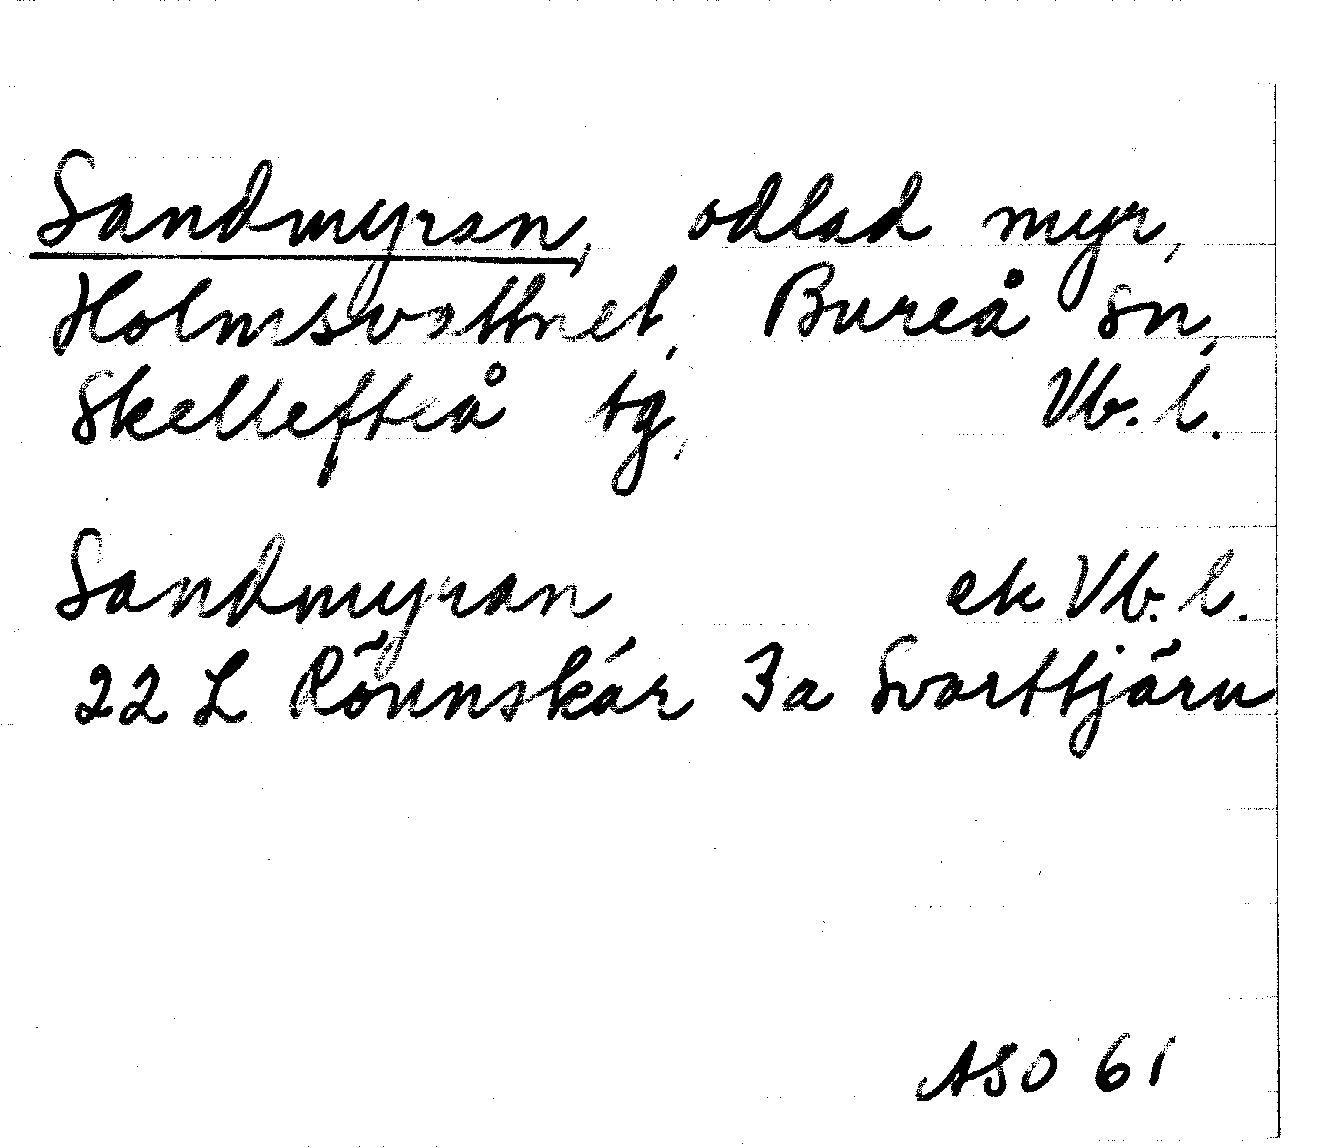 Sandmyran, odlad myr,
Holmsvattnet, Bureå sn,
Skellefteå tg, Vb. l.
Sandmyran ek Vb. l.
22 L Rönnskär 3a Svarttjärn
ASO 61